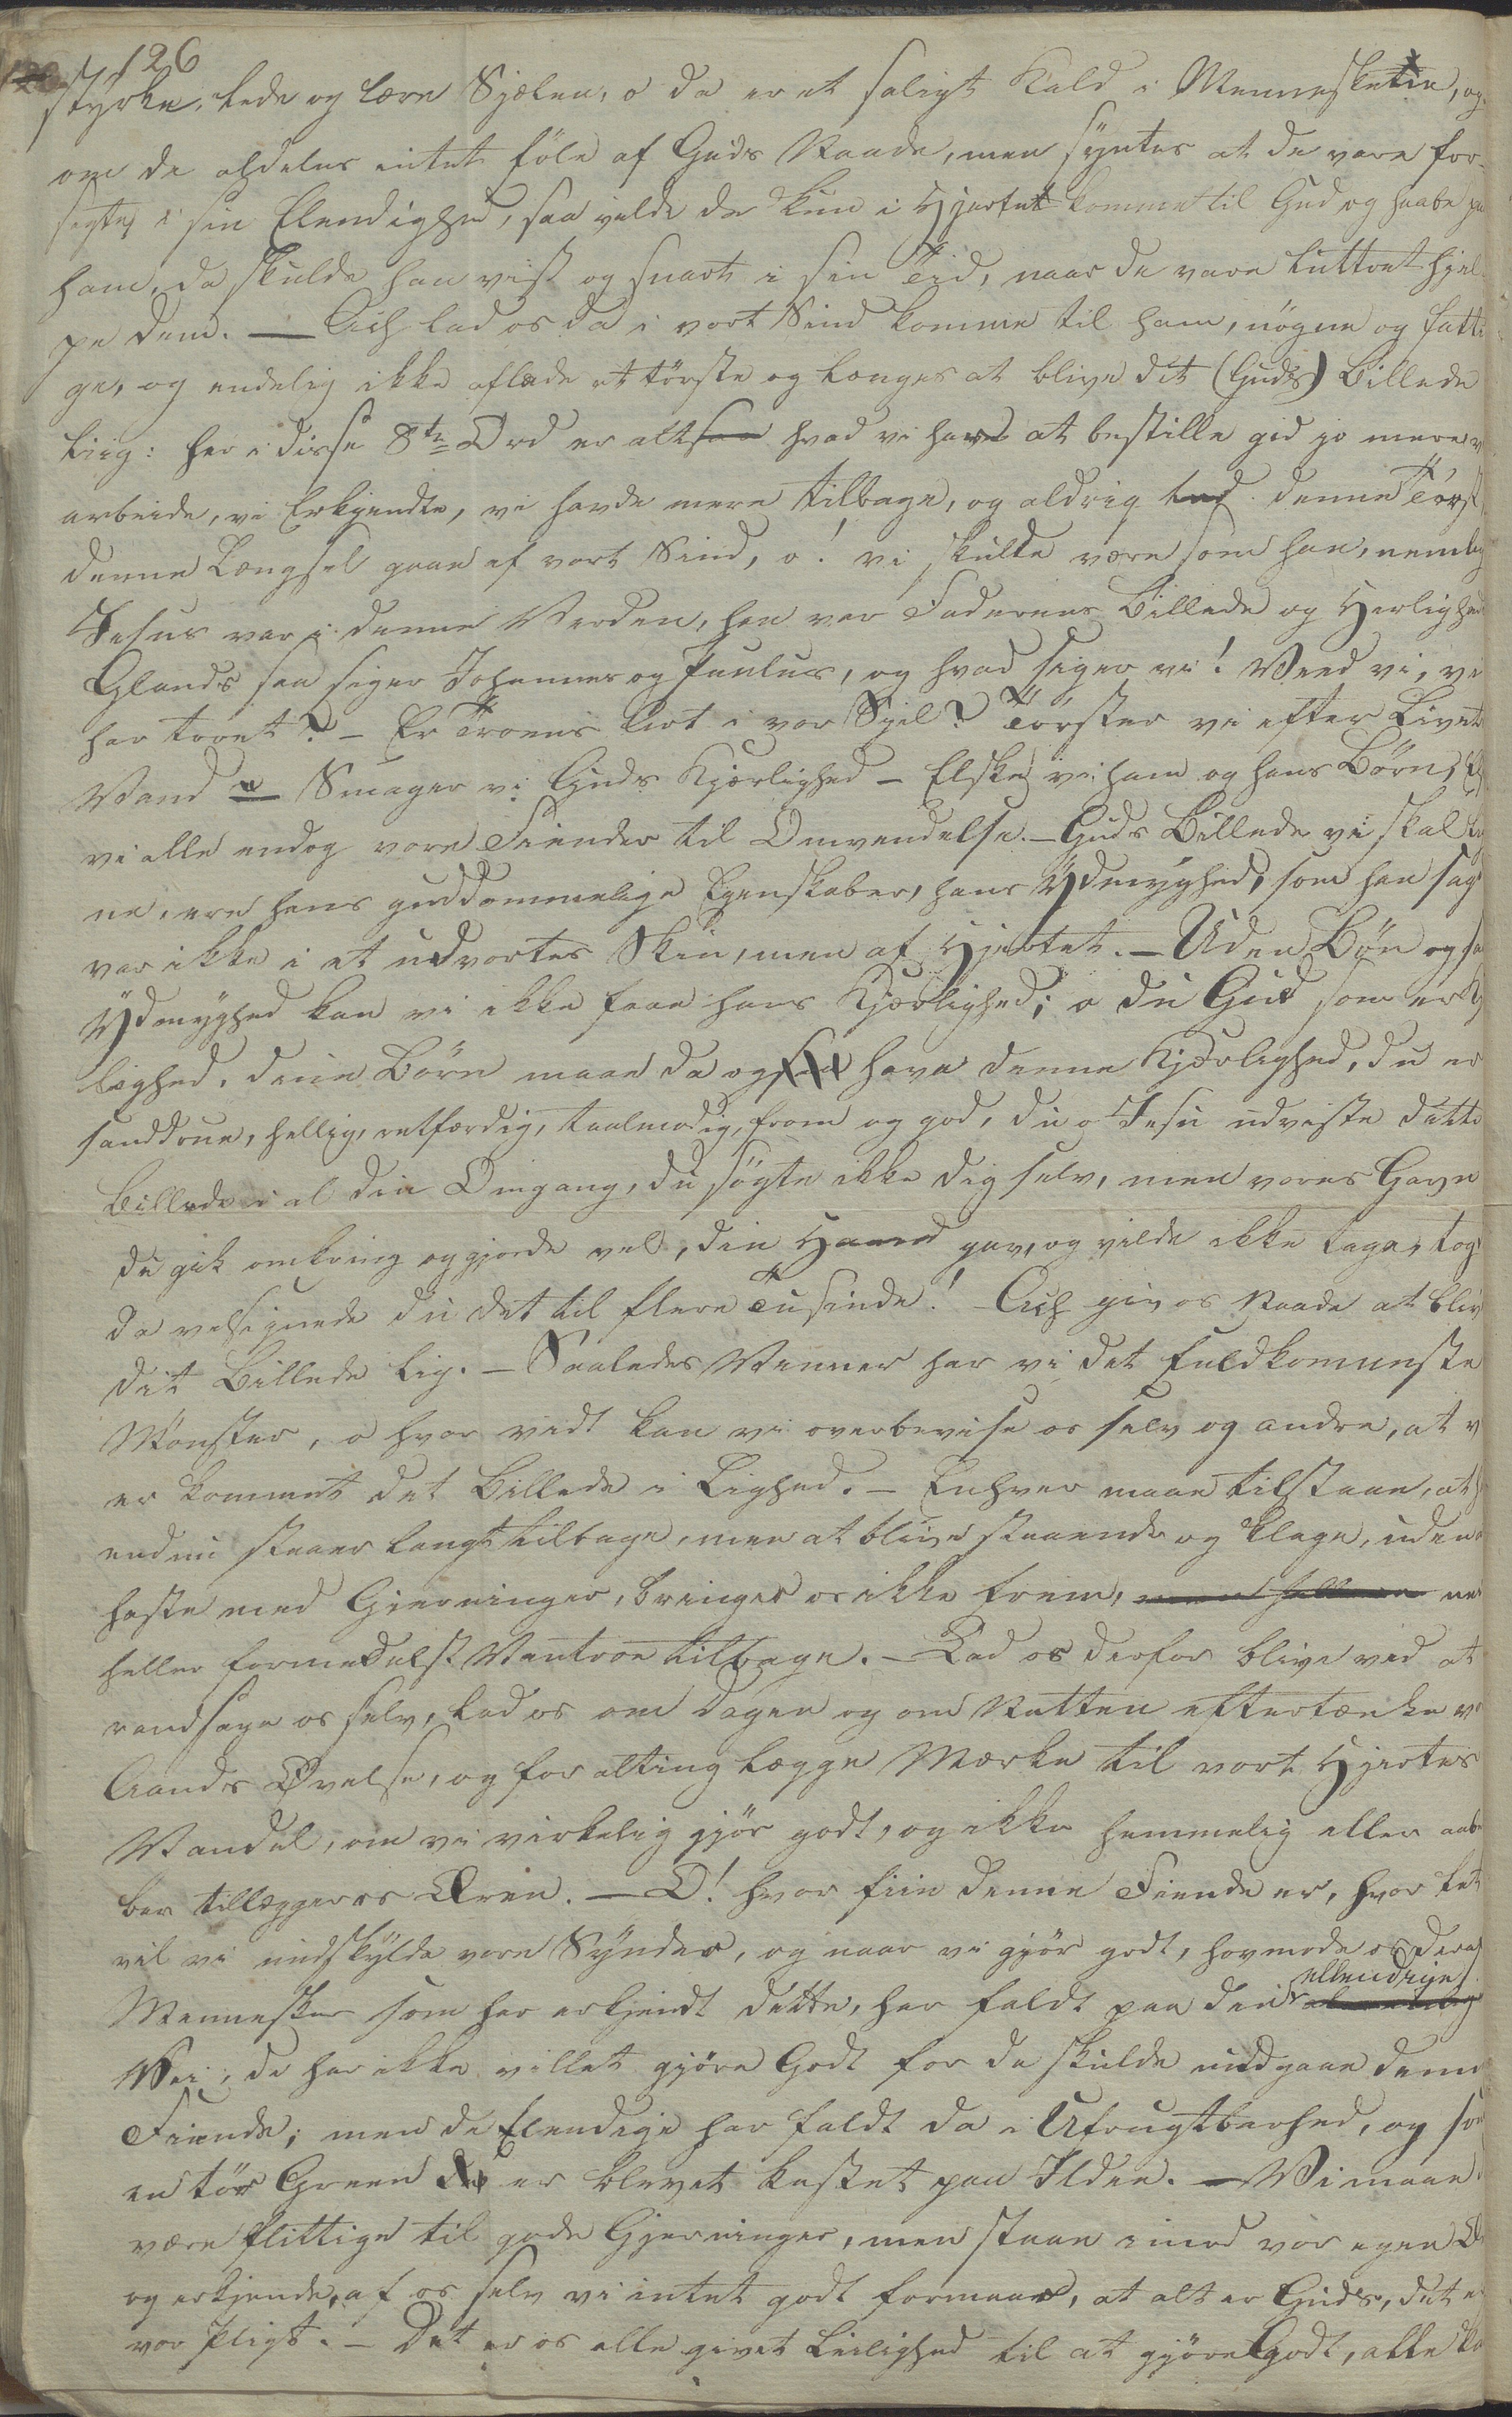 126
styrke, lede og lære Sjælen, o da er et saligt Kald i Menneskene, og
om de aldeles intet föle af Guds Naade, men syntes at de vare for-
sigtet i sin Elendighed, saa vilde de kun i Hjertet komme til Gud og haabe paa
ham, da skulde han vist og snart i sin Tid, naar de vare luttret hjel-
pe dem. — Ach lad os da i vort Sind komme til ham, nögne og fatti
ge, og endelig ikke aflade at törste og længes at blive dit (Guds) Billede
liig: her i disse 8te Ord er alt hvad vi have at bestille gid jo mere vi
arbeide, vi Erkjendte, vi havde mere tilbage, og aldrig lad denne Törst
denne Længsel gaae af vort Sind, o! vi skulde være som han, nemlig
Jesus var i denne Verden, han var Faderens Billede og Herligheds
Glands saa siger Johannes og Paulus, og hvad siger vi! Veed vi, vi
har troet? — Er Troens Art i vor Sjel? Törster vi efter Livets
Vand — Smager vi Guds Kjærlighed — Elske vi ham og hans Börn,
vi alle endog vore Fiender til Omvendelse. — Guds Billede vi skal
ne, ere hans guddommelige Egenskaber, hans Ydmyghed, som han sagde
var ikke i et udvortes Skin, men af Hjertet. — Uden Bön og
Ydmyghed kan vi ikke faae hans Kjærlighed; o du Gud som er Kj
lighed, dine Börn maae da og have denne Kjærlighed, du er
sanddrue, hellig, retfærdig, taalmodig, from og god, du o Jesu udviste dette
Billede i al din Omgang, du sögte ikke dig selv, men vores Gavn
du gik omkring og gjorde vel, din Haand gav, og vilde ikke tage, tog
da velsignede du det til flere Tusinde! — Ach giv os Naade at bliv
dit Billede lig. — Saaledes Venner har vi det fuldkomneste
Mönster, o hvor vidt kan vi overbevise os selv og andre, at v
er kommet det Billede i Lighed. — Enhver maae tilstaae, at
endnu staaer langt tilbage, men at blive staaende og klage, uden
haste med Gierninger, bringer os ikke frem,
heller formedelst Vantroe tilbage. — Lad os derfor blive ved at
randsage os selv, lad os om Dagen og om Natten eftertænke v
Aands Øvelse, og for alting lægge Mærke til vort Hjertes
Vandel, om vi virkelig gjör godt, og ikke hemmelig eller aab
bar tillægger os Æren. — O! hvor fiin denne Fiende er, hvor let
vil vi undskylde vore Synder, og naar vi gjör godt, hovmode os deraf
Mennesker som har erkjendt dette, har faldt paa den ellendige
Vei, de har ikke villet gjöre Godt for da skulde undgaae denne
Fiende; men de Elendige har faldt da i Ufrugtbarhed, og som
en tör Green er blevet kastet paa Ilden. — Vi maae
være flittige til gode Gjerninger, men staae imod vor egen
og erkjende, af os selv vi intet godt formaae, at alt er Guds, det er
vor Pligt. — Det er os alle givet Leilighed til at gjöre godt, alle